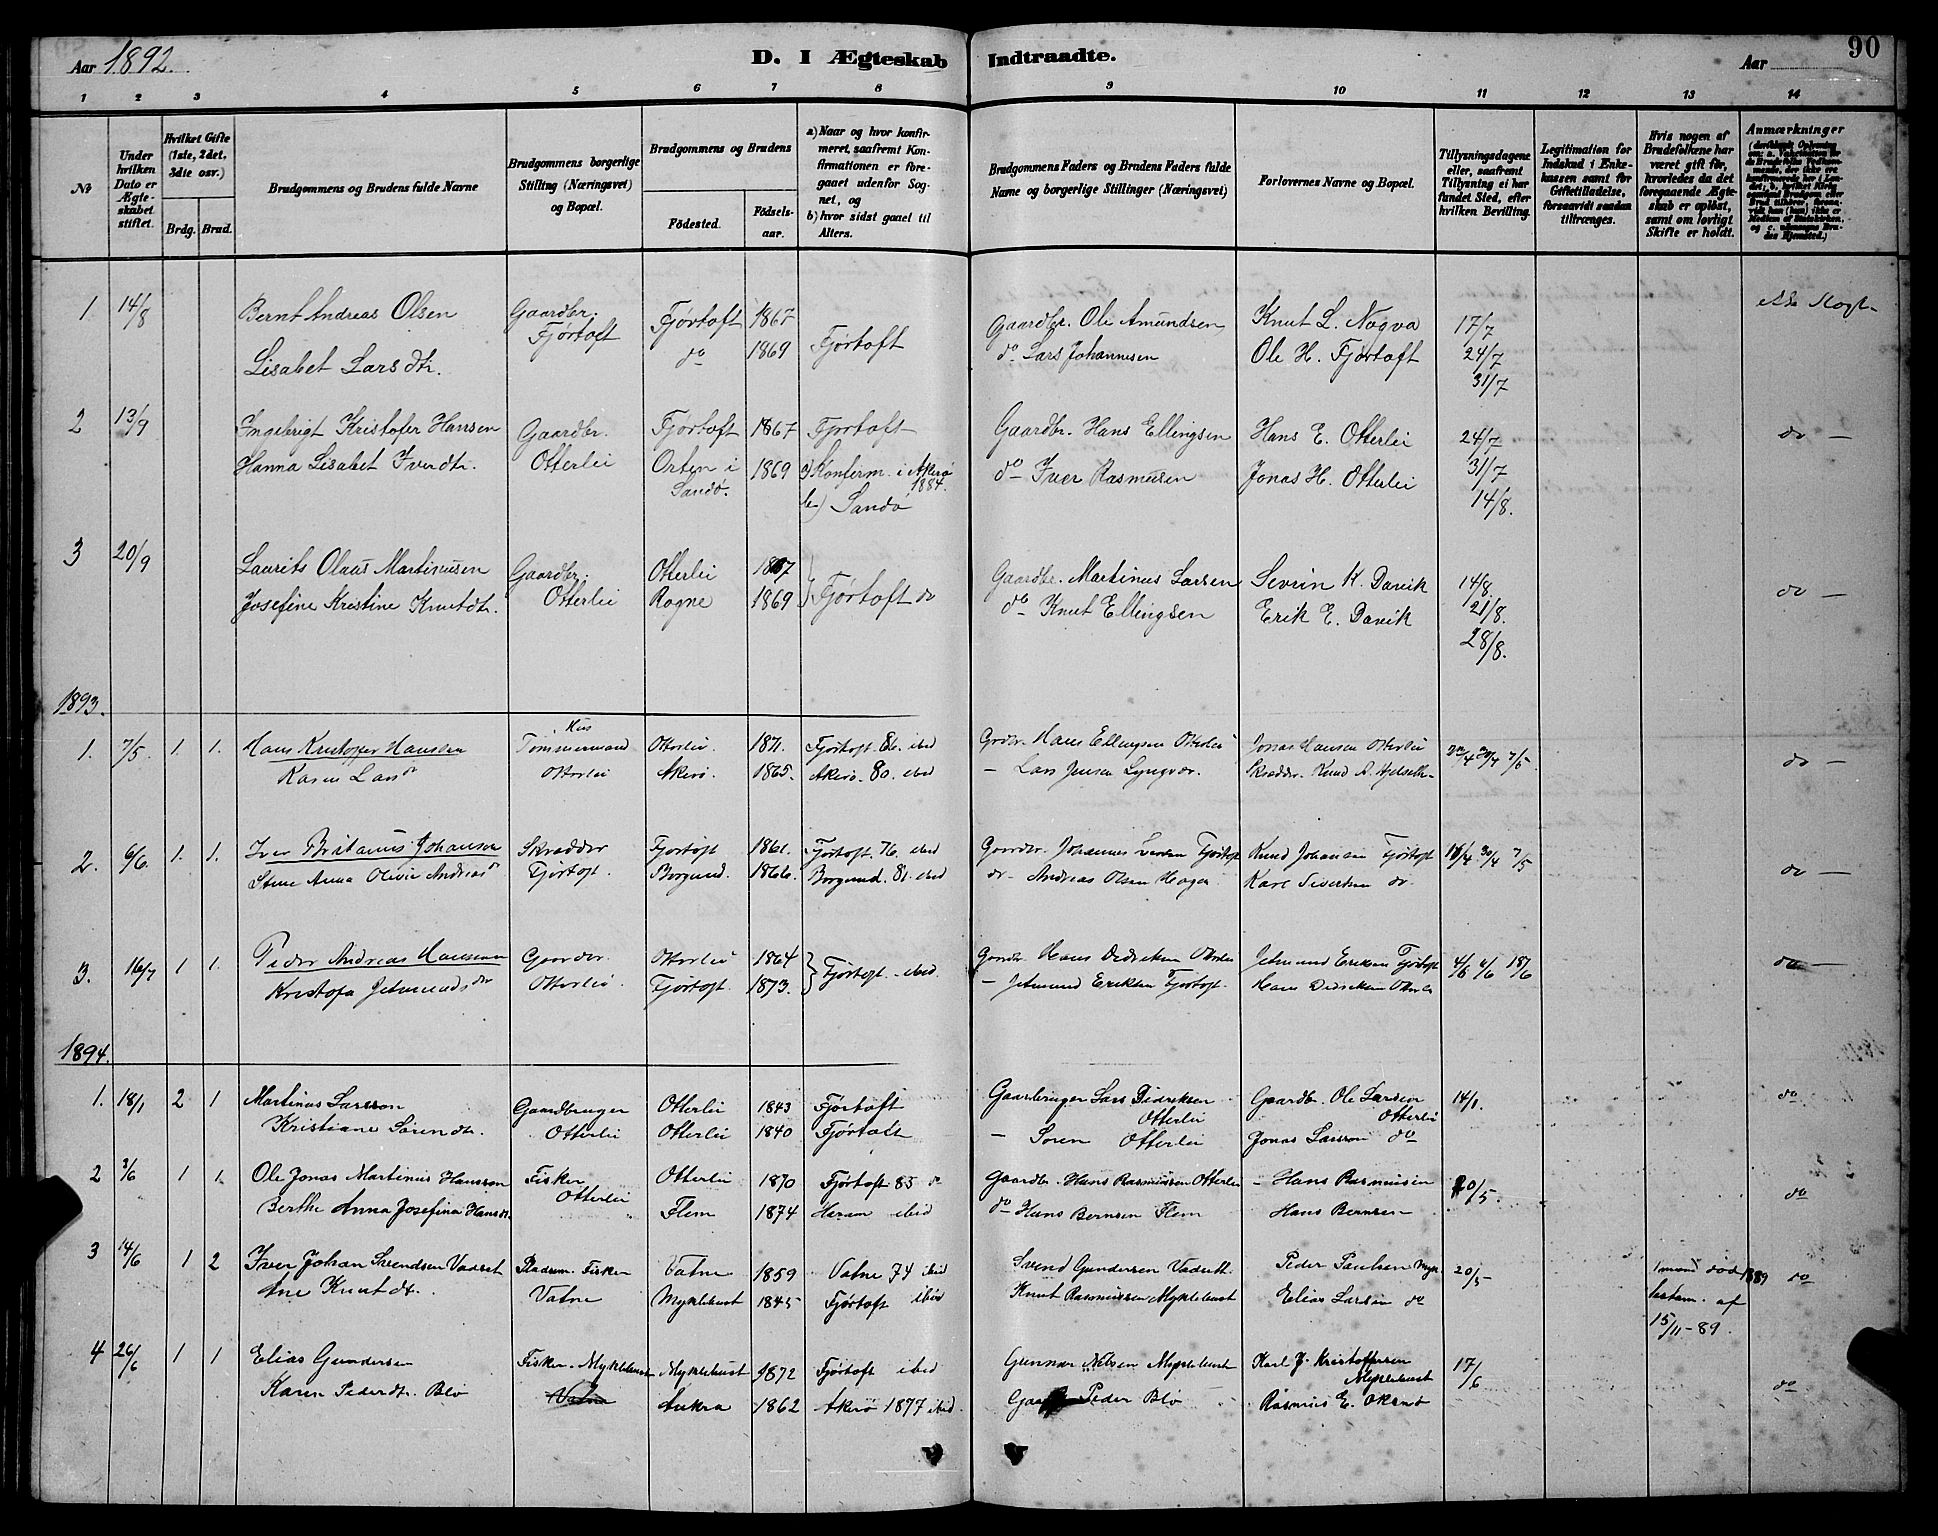 Aar 1892.
D. I Ægteskab Indtraadte.
Aar
90
1 2 3 4 5 6 7 8 9 10 11 12 13 14
No
Under hvilken Dato er Ægteskabet stiftet.
Hvilket Gifte (1ste, 2det, 3die osv.)
Brdg. Brud.
Brudgommens og Brudens fulde Navne
Brudgommens borgerlige Stilling (Næringsvei) og Bopæl.
Brudgommens og Brudens
Fødested.
Fødselsaar.
a) Naar og hvor konfirmeret, saafremt Konfirmationen er foregaaet udenfor Sognet, og
b) hvor sidst gaaet til Alters.
Brudgommens Faders og Brudens Faders fulde Navne og borgerlige Stillinger (Næringsvei)
Forlovernes Navne og Bopæl.
Tillysningsdagene eller, saafremt Tillysning ei har fundet Sted, efter hvilken Bevilling.
Legitimation for Indskud i Enkekassen samt for Giftetilladelse, forsaavidt saadan tiltrænges.
Hvis nogen af Brudefolkene har været gift før, hvorledes da det foregaaende Ægteskab er opløst, samt om lovligt Skifte er holdt.
Anmærkninger
1 14/8 Bernt Andreas Olsen Gaardbr. Fjørtoft Fjørtoft 1867 Fjørtoft Gaardbr. Ole Amundsen Knut L. Nogva 17/7
Lisabet Larsdtr. do 1869 do Lars Johannesen Ole H. Fjørtoft 24/7
31/7
2 13/9 Ingebrigt Kristofer Hansen Gaardbr. Fjørtoft 1867 Fjørtoft Gaardbr. Hans Ellingsen Hans E. Otterlei 24/7 do —
Hanna Lisabet Iverdtr. Otterlei Orten i Sandø. 1869 a) Konferm. i Akerø 1884. do Iver Rasmusen Jonas H. Otterlei 31/7
b) Sandø 14/8.
3 20/9 Laurits Olaus Martinusen Gaardbr. Otterlei 1867 Fjørtoft do Gaardbr. Martinus Larsen Sevrin K. Davik 14/8. do —
Josefine Kristine Knutdtr. Otterlei Rogne 1869 do Knut Ellingsen Erik E. Davik 21/8.
28/8.
1893.
1. 7/5. 1. 1. Hans Kristoffer Hansen Hus Tømmermand Otterlei 1871. Fjørtoft. 86. ibid Grdbr. Hans Ellingsen Otterlei Jonas Hansen Otterlei 30/4 7/5 do —
Karen Larsdr Otterlei Akerø. 1865. Akerø. 80. ibid — Lars Jensen Skrædder. Knud A.
2. 6/6. 1. 1. Iver Johansen Skrædder Fjørtoft 1861. Fjørtoft. 76. ibid Gaardbr. Johannes Fjørtoft Knud Johansen Fjørtoft 30/4 7/5 do —
Stine Anna Olivie Andreasdr Fjørtoft. Borgund. 1866. Borgund. 81. ibid do. Andreas Olsen Karl Sivertsen do
3. 16/7 1 1. Peder Andreas Hansen Gaardbr. Otterlei 1864 Fjørtoft. ibid. Gaardbr. Hans Didriksen Otterlei Jetmund Eriksen Fjørtoft 4/6 18/6 do —
Kristofa Jetmundsdr Otterlei. Fjørtoft. 1873. — Jetmund Eriksen Fjørtoft. Hans Didriksen Otterlei
1894.
1. 18/1 2 1 Martinus Larsson Gaardbruger Otterlei 1843 Fjørtoft Gaarbruger Lars Didriksen Otterlei Gaardb. Ole Larsen Otterlei 14/1. do
Kristiane Sørendtr. Otterlei Otterlei 1840 Fjørtoft — Søren Otterlei Jonas Larsson do
2 3/6 1 1 Ole Jonas Martinus Hansson Fisker Otterlei 1870 Fjørtoft 85 do Gaardbr. Hans Rasmussen Otterlei — Hans Rasmussen 20/5. do
Berthe Anna Josefina Hansdt. Otterlei Flem 1874 Haram ibid do Hans Bernsen Flem Hans Bernsen
3 14/6 1 2 Iver Johan Svendsen Vadset Pladsm. Fisker Vatne 1859 Vatne 74 ibid Svend Gundersen Vadsett Peder Paulsen Mykl 20/5 1 mand død 1889 do
Ane Knutdt. Vatne Myklebust 1845 Fjørtoft ibid Knut Rasmussen Myklebust Elias Larsen do af 15/11-89.
4 26/6 1 1 Elias Gundersen Fisker Myklebust Myklebust 1872 Fjørtoft ibid Gunnar Nilsen Myklebust Karl J. Kristoffersen Myklebust 17/6 do
Karen Pederdtr. Blø Vatne Aukra 1862 Akerø 1877 ibid. Peder Blø Rasmus E.